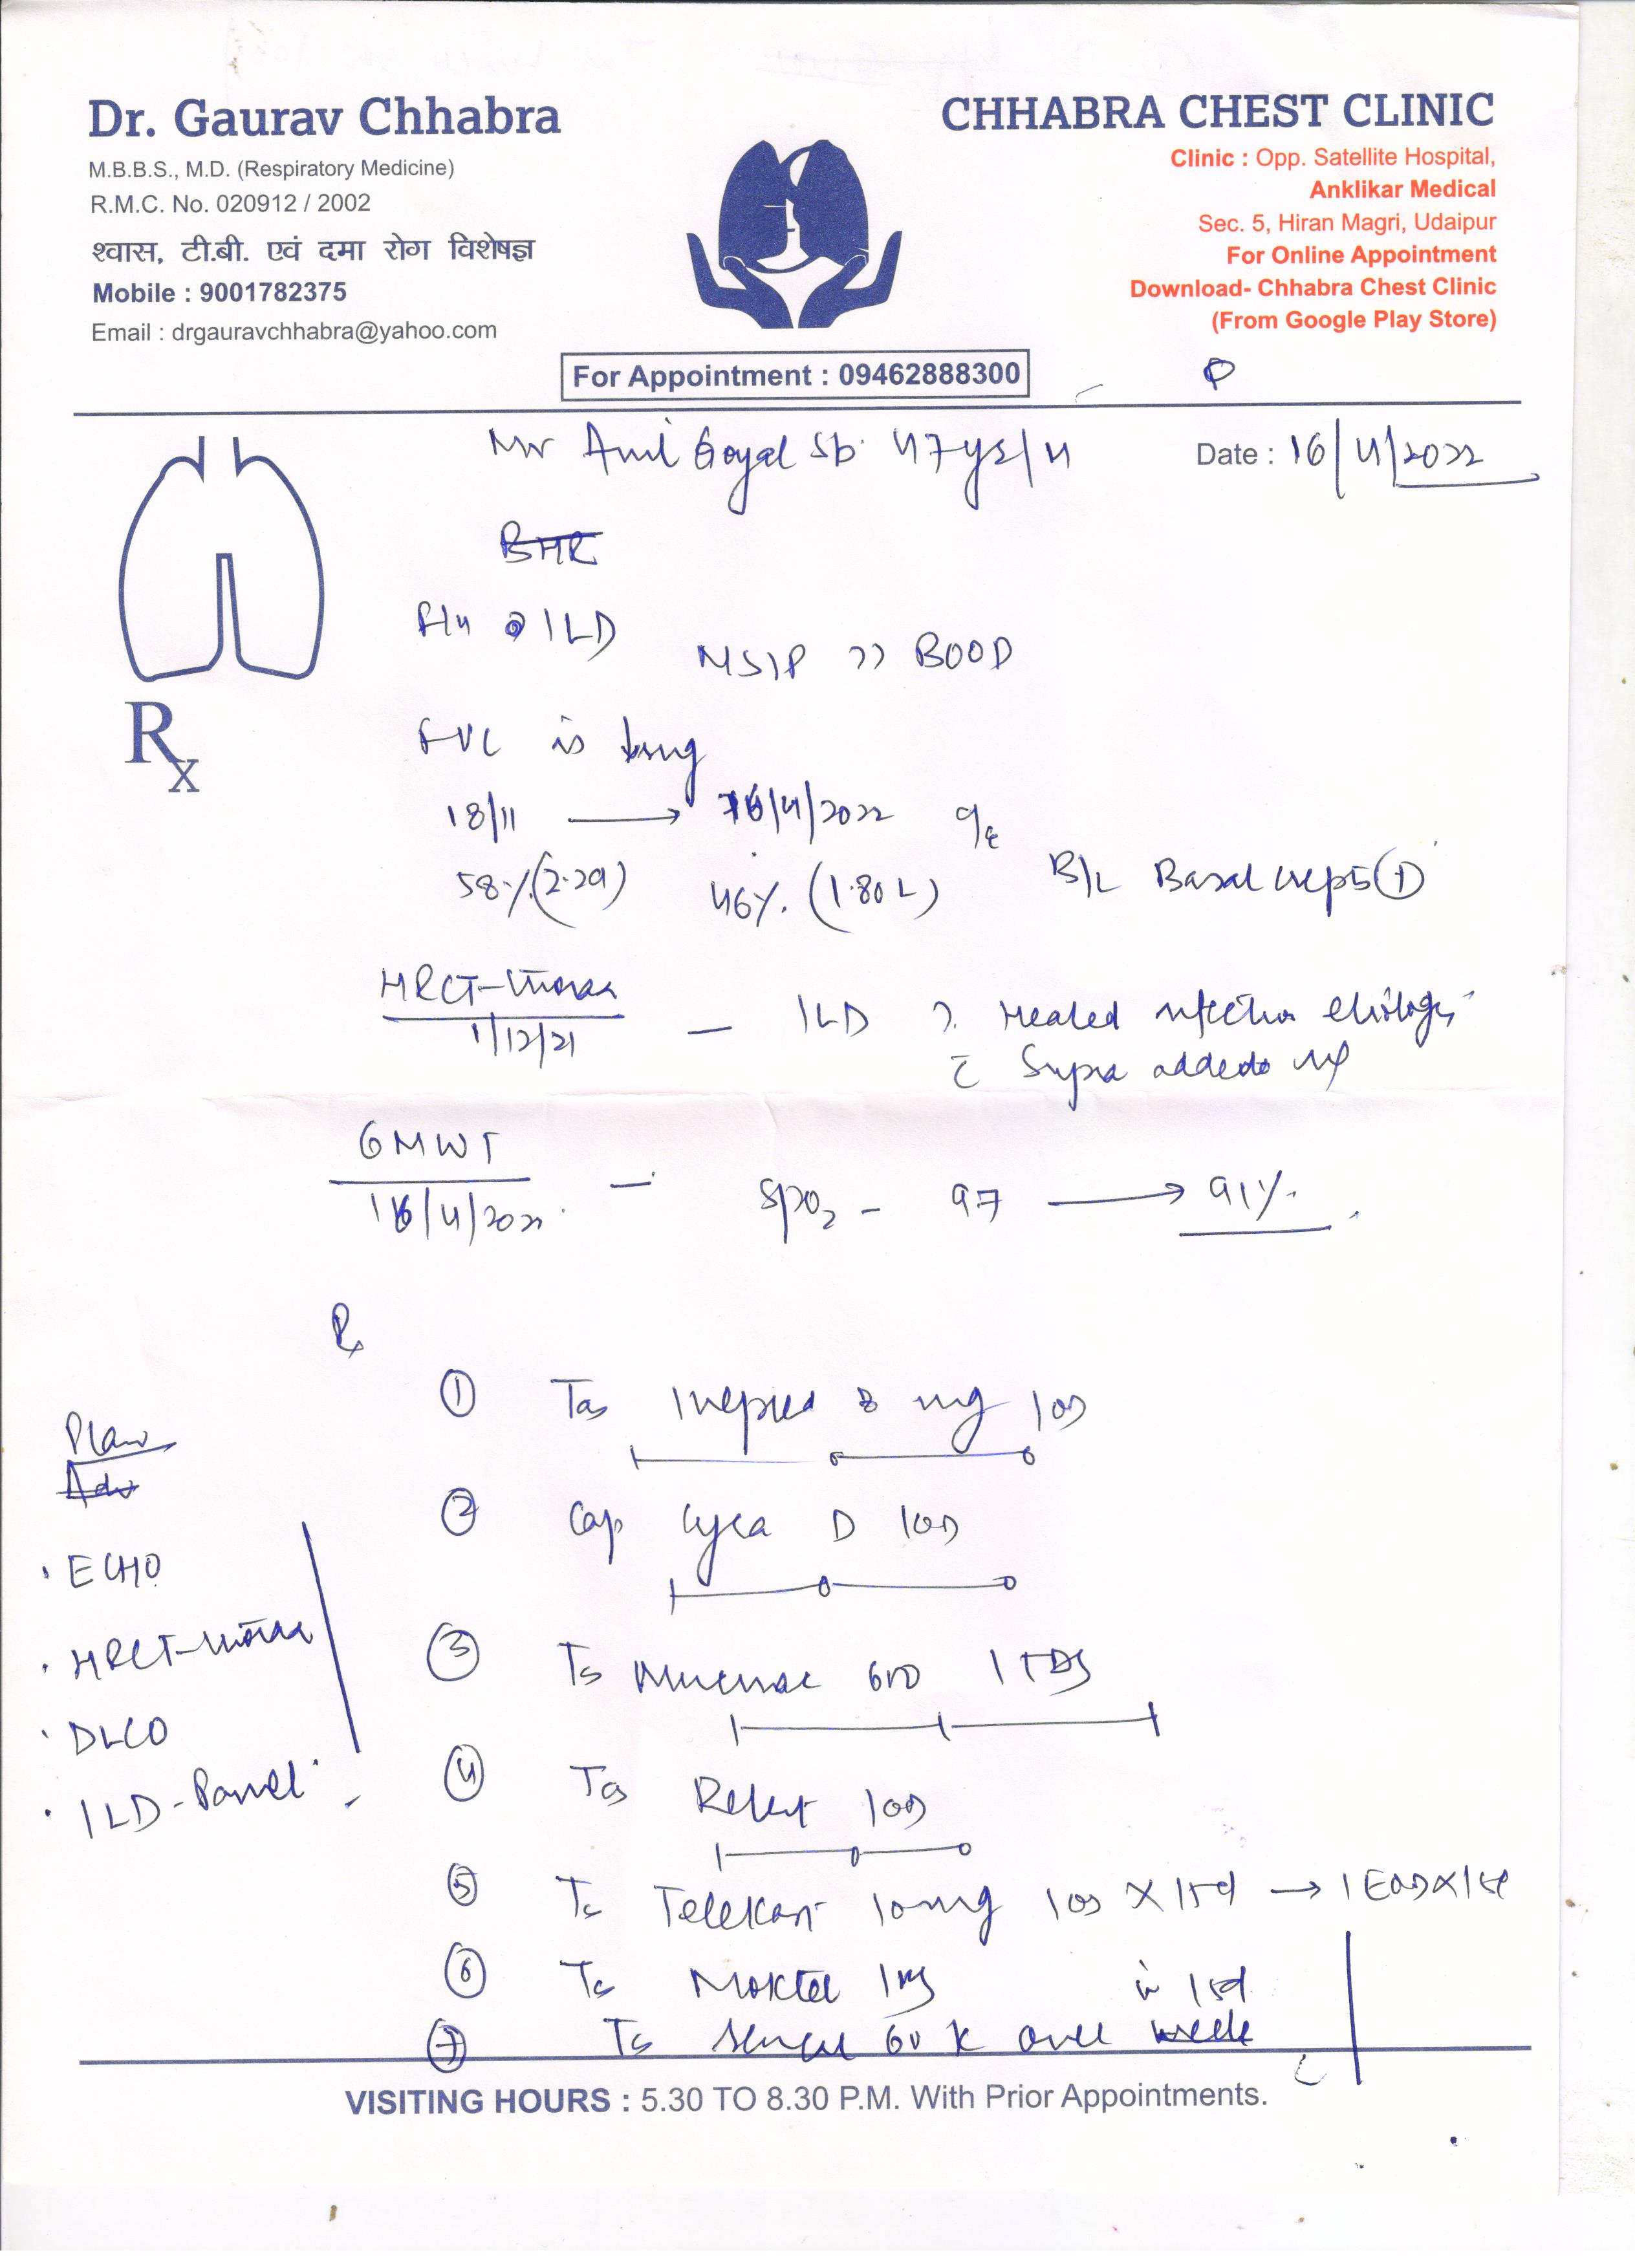 Dr. Gaurav Chhabra
M.B.B.S., M.D. (Respiratory Medicine)
R.M.C. No. 020912 / 2002
श्वास, टी.बी. एवं दमा रोग विशेषज्ञ
Mobile : 9001782375
Email : drgauravchhabra@yahoo.com
CHHABRA CHEST CLINIC
Clinic : Opp. Satellite Hospital,
Anklikar Medical
Sec. 5, Hiran Magri, Udaipur
For Online Appointment
Download- Chhabra Chest Clinic
(From Google Play Store)
For Appointment : 09462888300
Mr Anil Goyal 47 yrs/M
Date : 16/4/2022
ILD
NSIP >> BOOP
Rx
FVC is
18/11 → 16/4/2022 O/E
58% (2.29) 46% (1.80 L)
B/L Basal creps (+)
HRCT-Thorax
1/12/21 – ILD ? Healed infection etiology
c Supra added inf
6MWT
16/4/2022 – SpO2 - 97 → 91%.
Rx
1 Tab 8 mg 1OD
Plan
Adv
2 Cap D 1OD
ECHO
HRCT-Thorax
3 Tab Mucinac 600 1 TDS
DLCO
4 Tab Relent 1OD
ILD-Panel
5 Tab Telekast 10mg 1OD X 15d → 1 EOD X 15d
6 Tab
7 Tab 60 K once week
VISITING HOURS : 5.30 TO 8.30 P.M. With Prior Appointments.